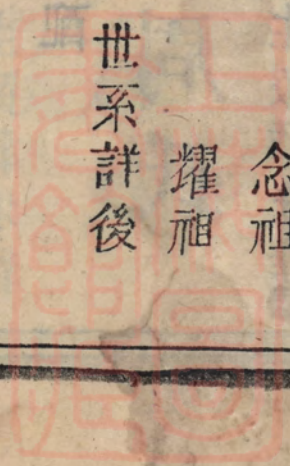 念祖
耀祖
世系詳後